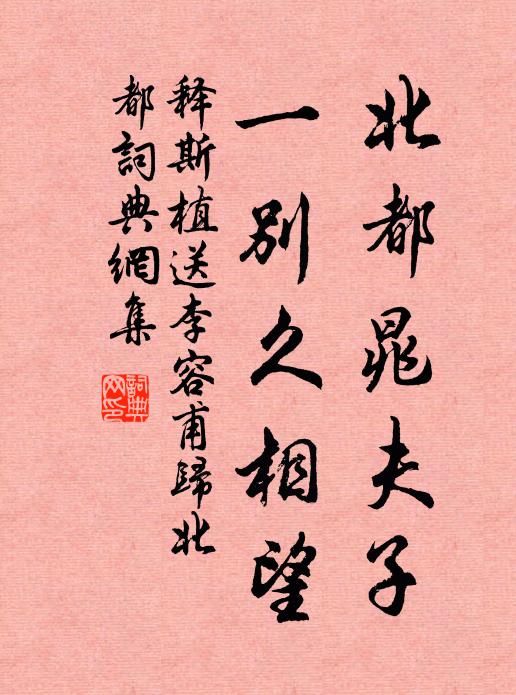 北都晁夫子
一别久相望
释斯植送李容甫歸北
都詞典網集
詞典网印